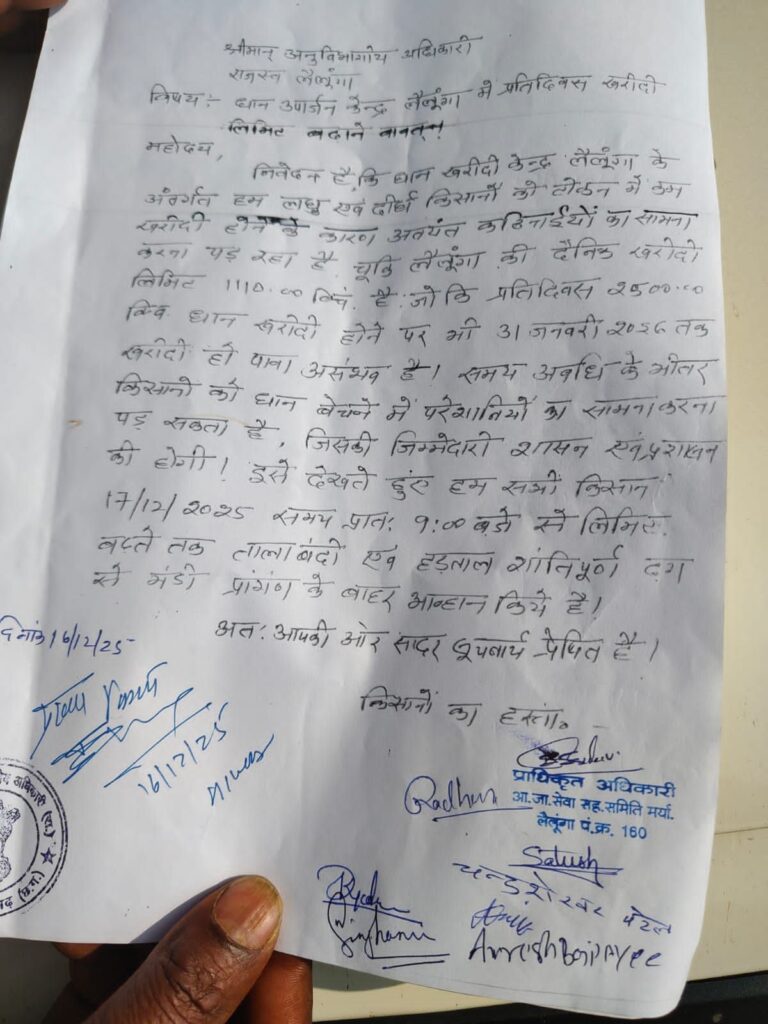 श्रीमान् अनुविभागीय अधिकारी
राजस्व लैलूंगा
विषय:- धान उपार्जन केन्द्र लैलूंगा में प्रतिदिवस खरीदी
लिमिट बढाने बाबत्!
महोदय,
निवेदन है, कि धान खरीदी केन्द्र लैलूंगा के
अंतर्गत हम लघु एवं दीर्घ किसानों को टोकन में कम
खरीदी होने के कारण अत्यंत कठिनाईयों का सामना
करना पड़ रहा है. चूकि लैलूंगा की दैनिक खरीदी
लिमिट 1110.00 क्विं. है. जो कि प्रतिदिवस 2500.00
क्विं धान खरीदी होने पर भी 31 जनवरी 2026 तक
खरीदी हो पाना असंभव है। समय अवधि के भीतर
किसानों को धान बेचने में परेशानियों का सामना करना
पड़ सकता है, जिसकी जिम्मेदारी शासन एवं प्रशासन
की होगी। इसे देखते हुए हम सभी किसान
17/12/2025 समय प्रातः 9:00 बजे से लिमिट
बढ़ते तक तालाबंदी एवं हड़ताल शांतिपूर्ण ढंग
से मंडी प्रांगंण के बाहर आव्हान किये है।
अतः आपकी ओर सादर सूचनार्थ प्रेषित है।
दिनांक 16/12/25
किसानों का हस्ता.
16/12/25
प्राधिकृत अधिकारी
आ.जा.सेवा सह.समिति मर्या.
लैलूंगा पं.क्र. 160
Radhun
Satush
चन्द्रशेखर पटेल
Singhania